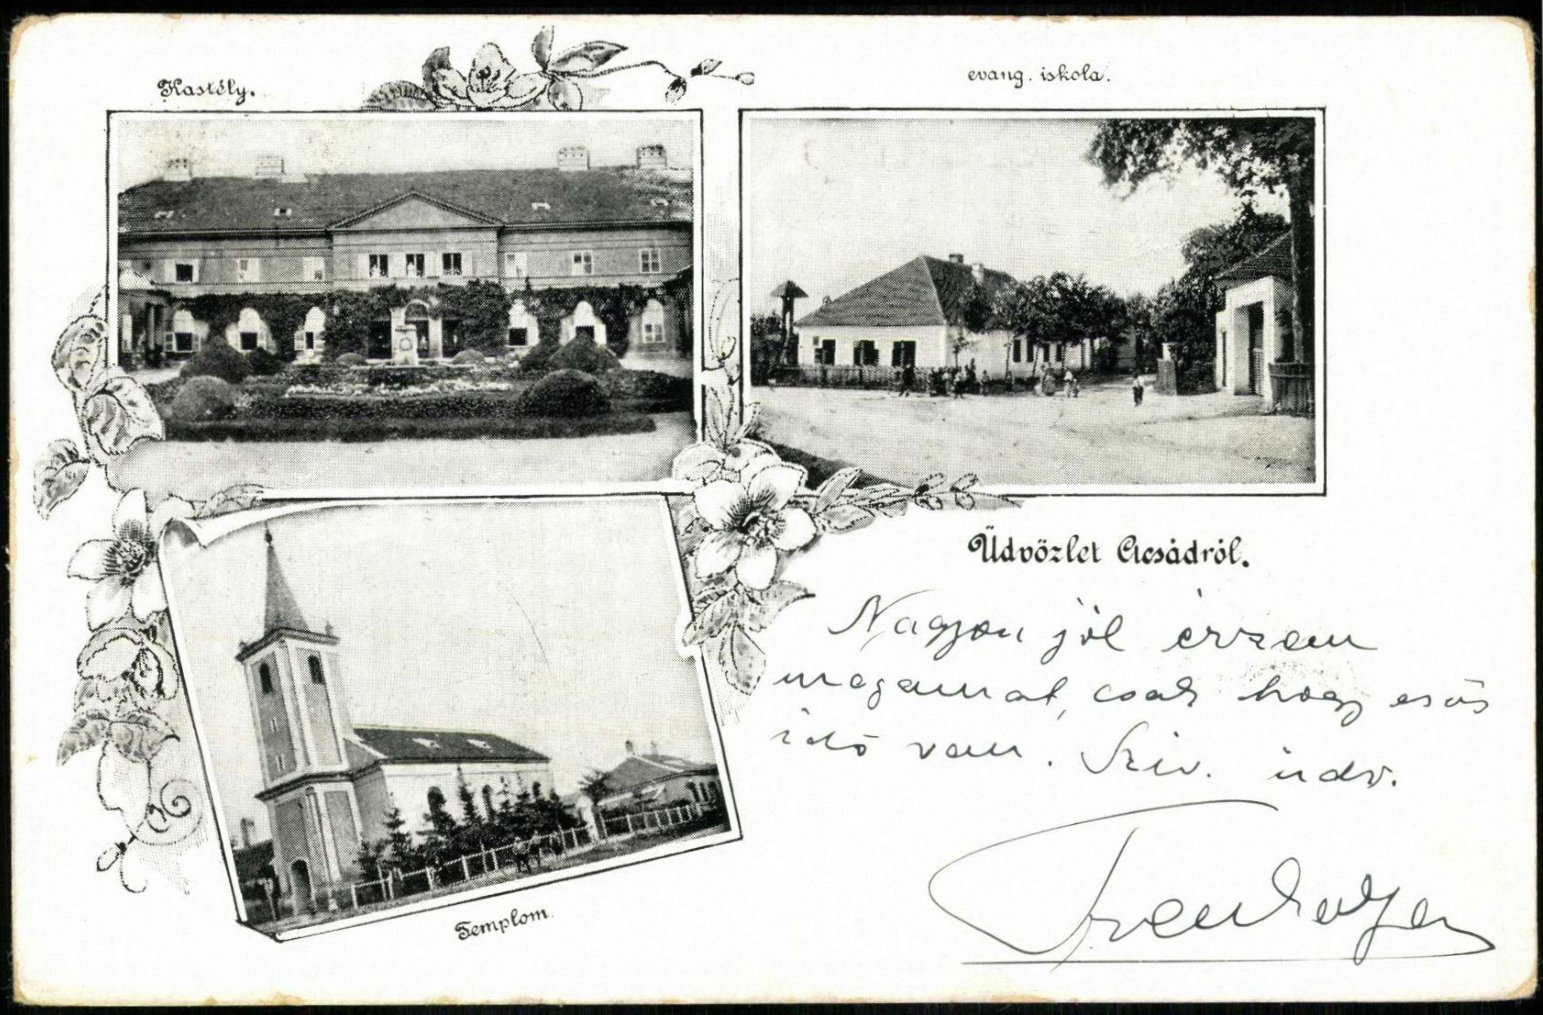 Kastély.
evang. iskola.
Üdvözlet Acsádról.
Nagyon jól érzem
magamat, csak hogy esős
idő van. Sziv. üdv.
Templom.